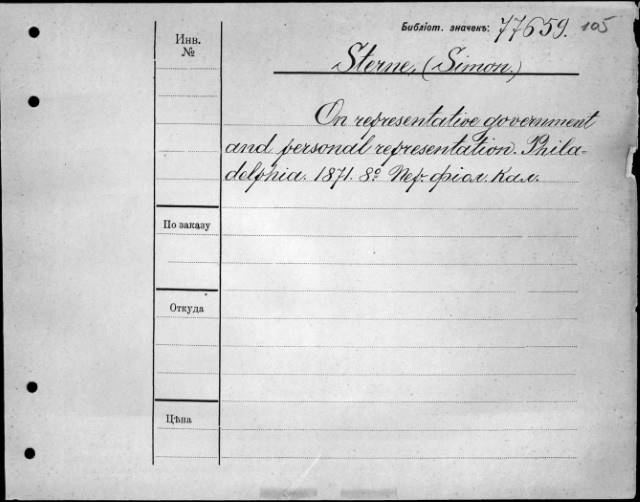 Библіот. значекъ: 77659. 105
Инв.
№
Sterne, (Simon.)
On representative government
and personal representation. Phila-
delphia. 1871. 8º Пер. фіол. кал.
По заказу
Откуда
Цѣна